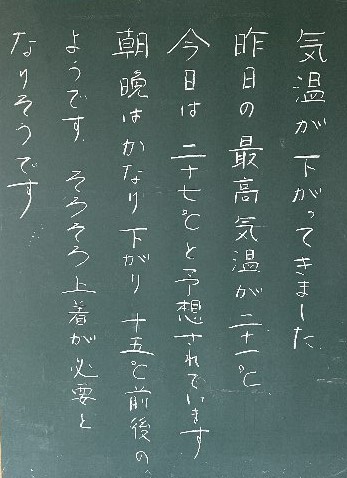 気温が下がってきました
昨日の最高気温が二十一℃
今日は二十七℃と予想されています
朝晩はかなり下がり十五℃前後の
ようです。そろそろ上着が必要と
なりそうです